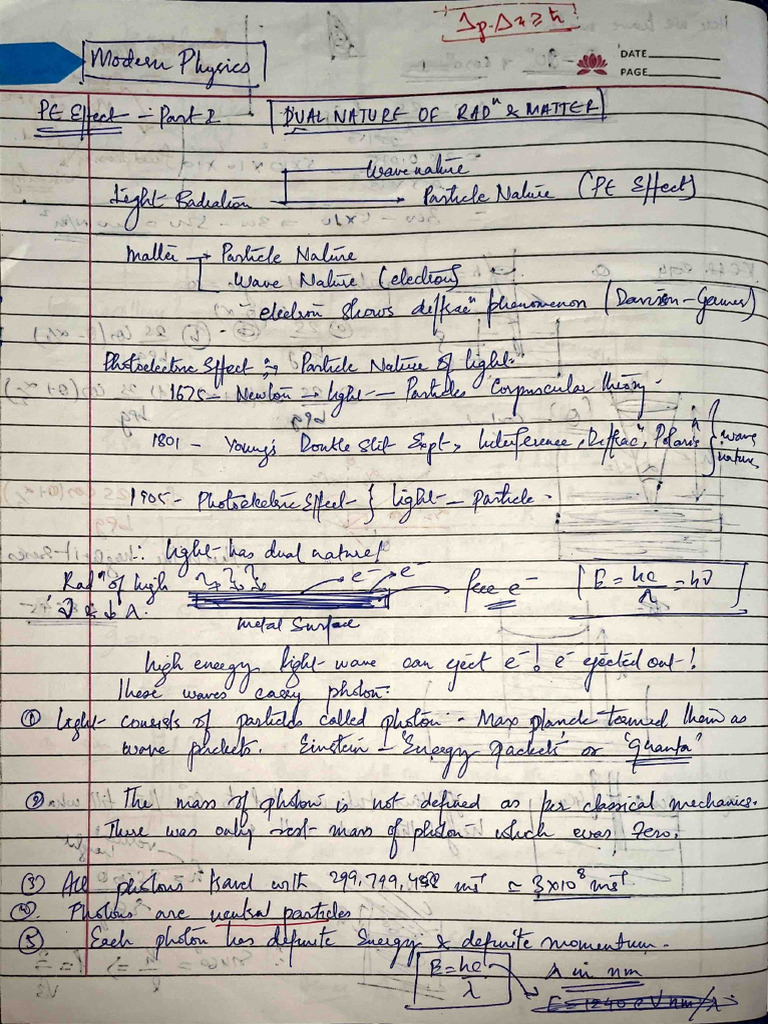 Δp.Δx ≥ ħ
Modern Physics
DATE
PAGE
PE Effect - Part I [DUAL NATURE OF RADⁿ & MATTER]
Wave nature
Light Radiation → Particle Nature (PE Effect)
Matter → Particle Nature
Wave Nature (electron)
electron shows deffracⁿ phenomenon (Davison-Germer)
Photoelectric Effect :→ Particle Nature of light.
1675 - Newton → light - Particles Corpuscular theory.
1801 - Young's Double Slit Expt, Interference, Diffracⁿ, Polarisⁿ } wave nature
1905 - Photoelectric Effect } light - Particle.
∴ light has dual nature!
Radⁿ of high ν & ↓ λ. e⁻ e⁻ free e⁻ [E = hc/λ = hν]
metal Surface
high energy light wave can eject e⁻! e⁻ ejected out!
These waves carry photon.
① Light consists of particles called photon. Max planck termed them as
wave packets. Einstein - 'Energy packets' or "Quanta"
② The mass of photon is not defined as per classical mechanics.
There was only rest mass of photon which was Zero.
③ All photons travel with 299,799,458 ms⁻¹ ≃ 3x10⁸ ms⁻¹
④. Photons are neutral particles
⑤ Each photon has definite Energy & definite momentum.
E = hc/λ λ in nm
E = 1240 eV nm/λ